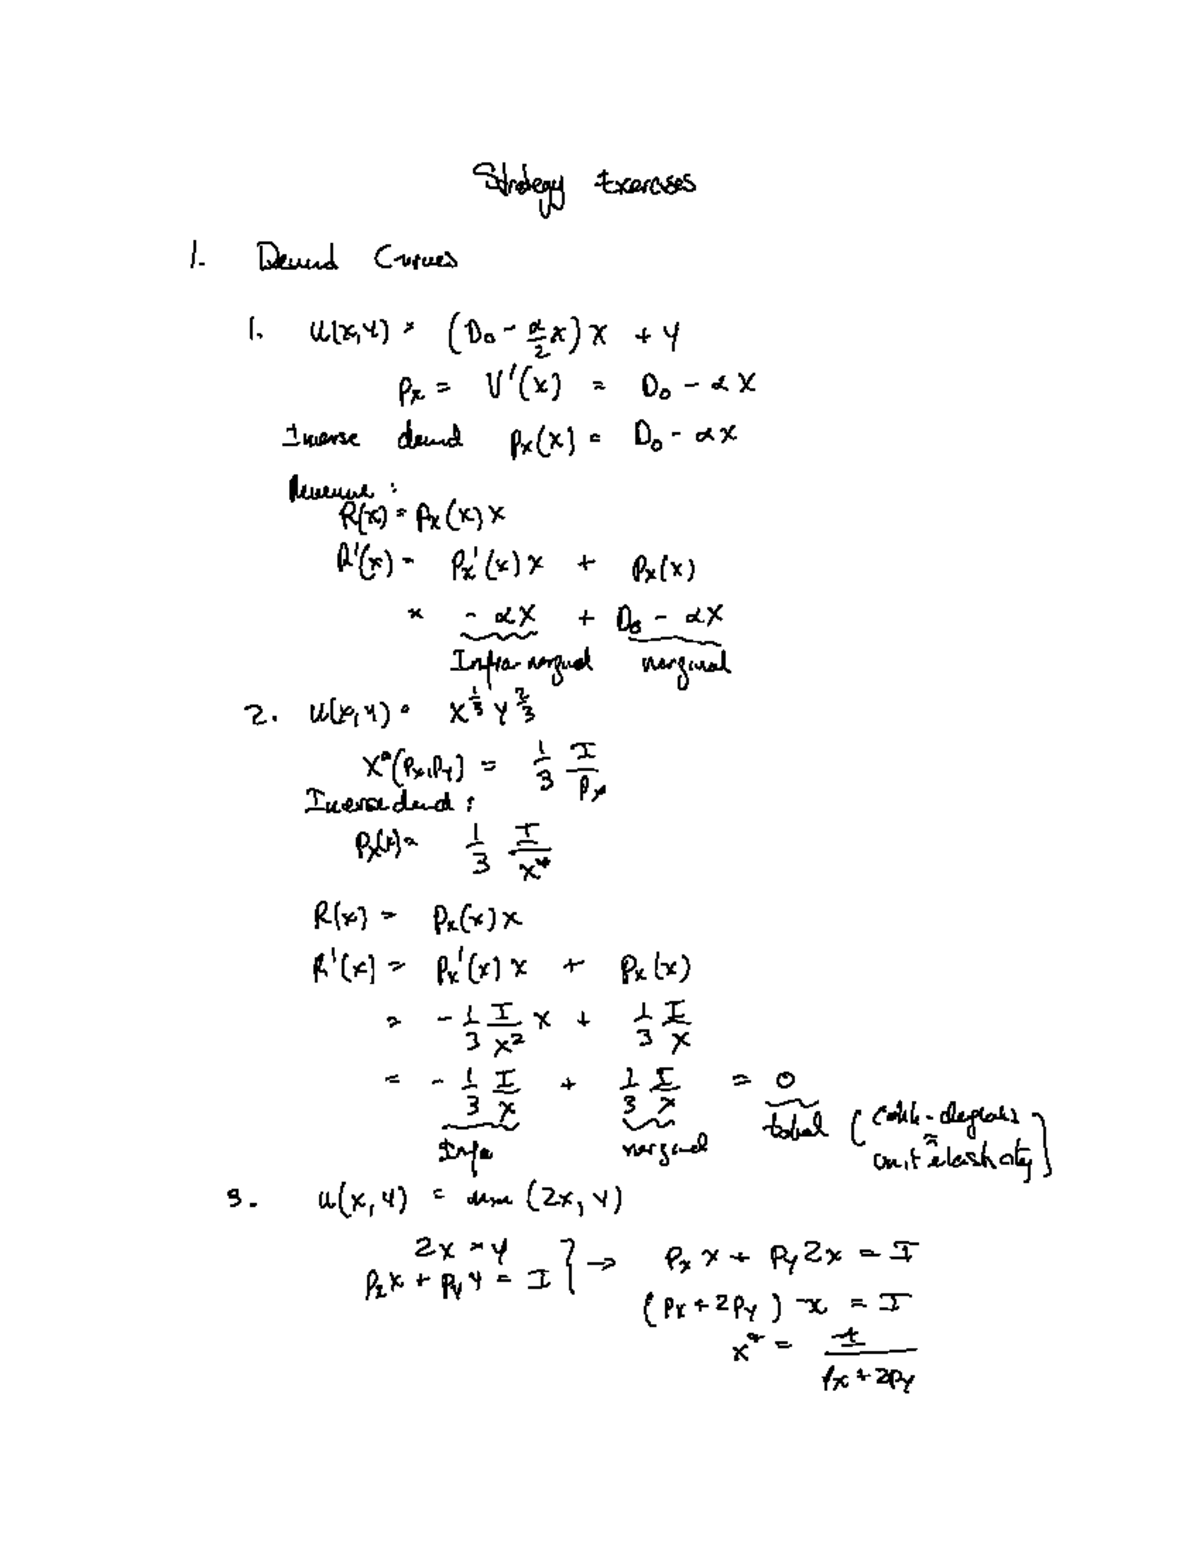 Strategy Exercises
1. Demand Curves
1. u(x,y) = (D₀ - α/2 x) x + y
pₓ = V'(x) = D₀ - αx
Inverse demand pₓ(x) = D₀ - αx
Revenue :
R(x) = pₓ(x) x
R'(x) = pₓ'(x) x + pₓ(x)
= - αx + D₀ - αx
Infra-marginal marginal
2. u(x,y) = x^{1/3} y^{2/3}
x*(pₓ,p_y) = 1/3 I/pₓ
Inverse demand :
pₓ(x) = 1/3 I/x*
R(x) = pₓ(x) x
R'(x) = pₓ'(x) x + pₓ(x)
= - 1/3 I/x² x + 1/3 I/x
= - 1/3 I/x + 1/3 I/x = 0
Infra marginal total (Cobb-Douglas = unit elasticity)
3. u(x,y) = min (2x, y)
2x = y
pₓx + p_y y = I } → pₓ x + p_y 2x = I
(pₓ + 2p_y) x = I
x* = I / (pₓ + 2p_y)